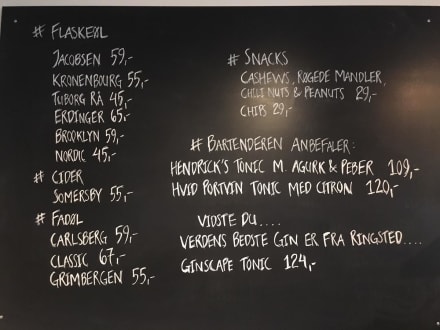 # FLASKEØL
JACOBSEN 59,-
KRONENBOURG 55,-
TUBORG RÅ 45,-
ERDINGER 65,-
BROOKLYN 59,-
NORDIC 45,-
# CIDER
SOMERSBY 55,-
# FADØL
CARLSBERG 59,-
CLASSIC 67,-
GRIMBERGEN 55,-
# SNACKS
CASHEWS, RØGEDE MANDLER,
CHILI NUTS & PEANUTS 29,-
CHIPS 29,-
# BARTENDEREN ANBEFALER:
HENDRICK'S TONIC M. AGURK & PEBER 109,-
HVID PORTVIN TONIC MED CITRON 120,-
VIDSTE DU....
VERDENS BEDSTE GIN ER FRA RINGSTED....
GINSCAPE TONIC 124,-